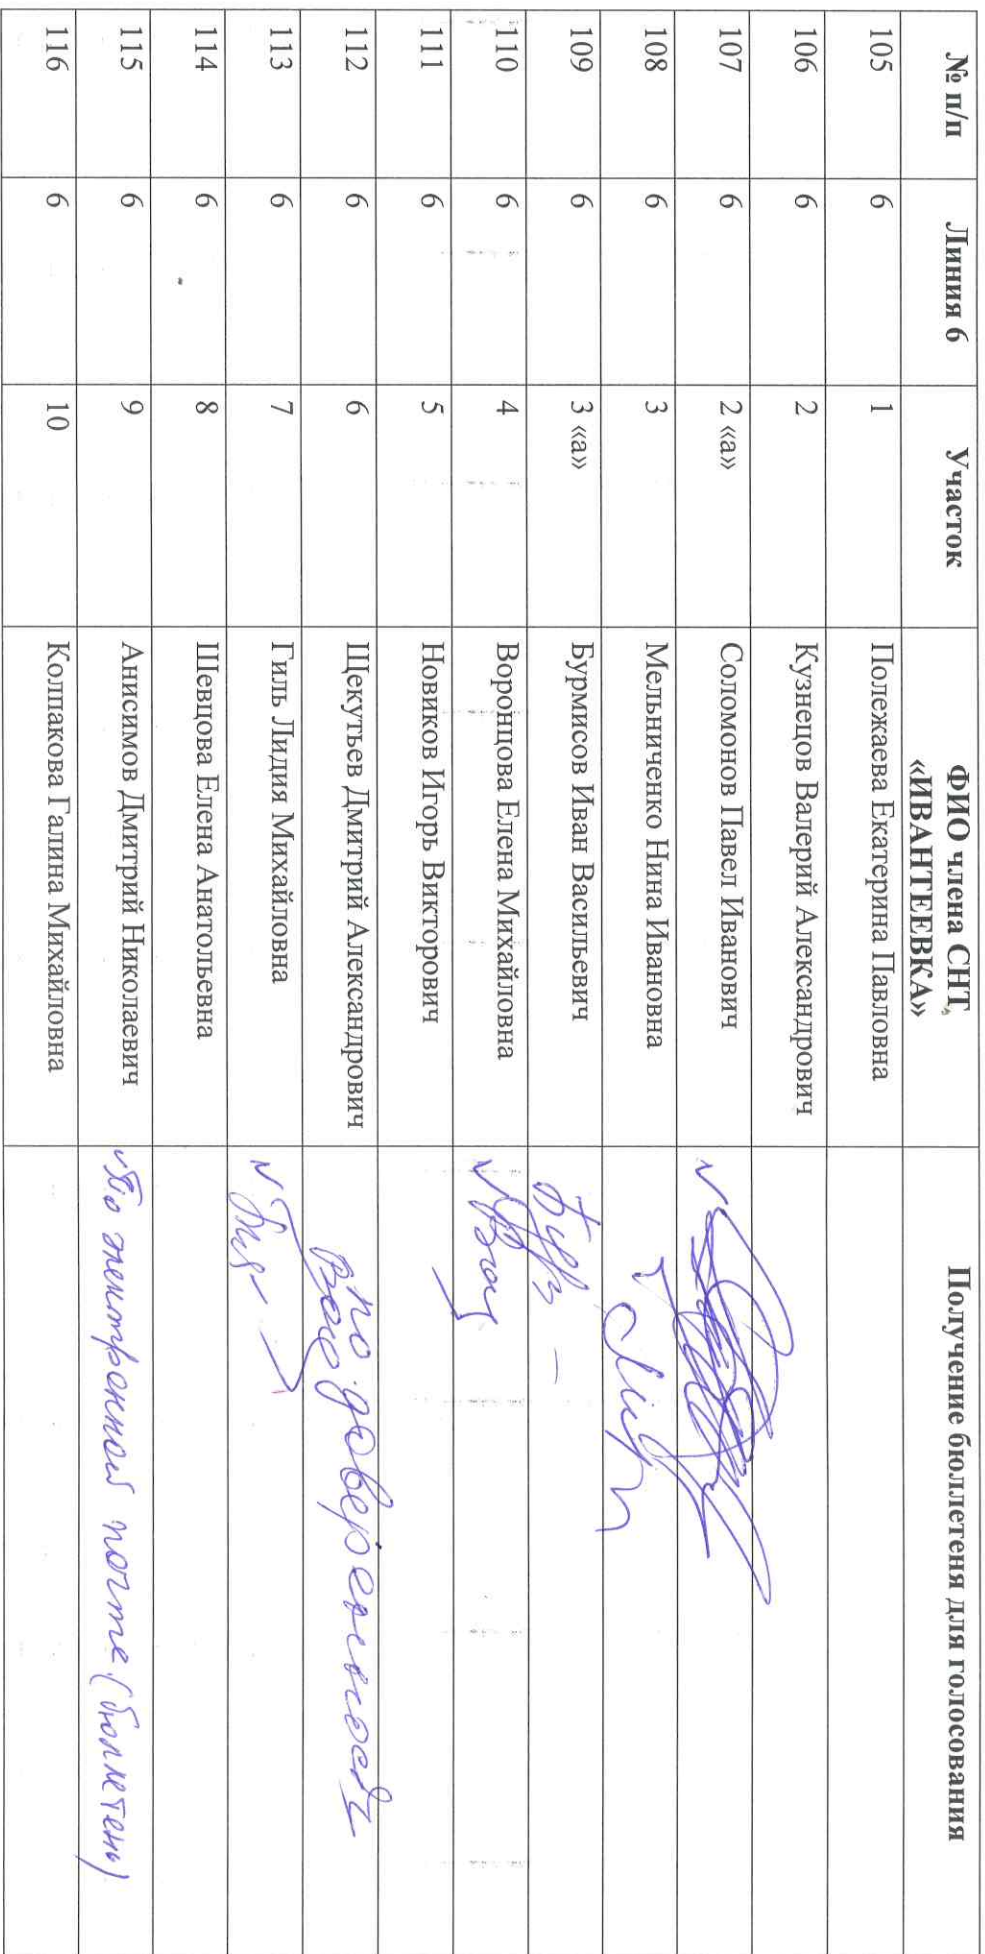 № п/п Линия 6 Участок ФИО члена СНТ «ИВАНТЕЕВКА» Получение бюллетеня для голосования
105 6 1 Полежаева Екатерина Павловна
106 6 2 Кузнецов Валерий Александрович
107 6 2 «а» Соломонов Павел Иванович
108 6 3 Мельниченко Нина Ивановна
109 6 3 «а» Бурмисов Иван Васильевич
110 6 4 Воронцова Елена Михайловна
111 6 5 Новиков Игорь Викторович
112 6 6 Щекутьев Дмитрий Александрович по доверенности
113 6 7 Гиль Лидия Михайловна
114 6 8 Шевцова Елена Анатольевна
115 6 9 Анисимов Дмитрий Николаевич По электронной почте (бюллетень)
116 6 10 Колпакова Галина Михайловна